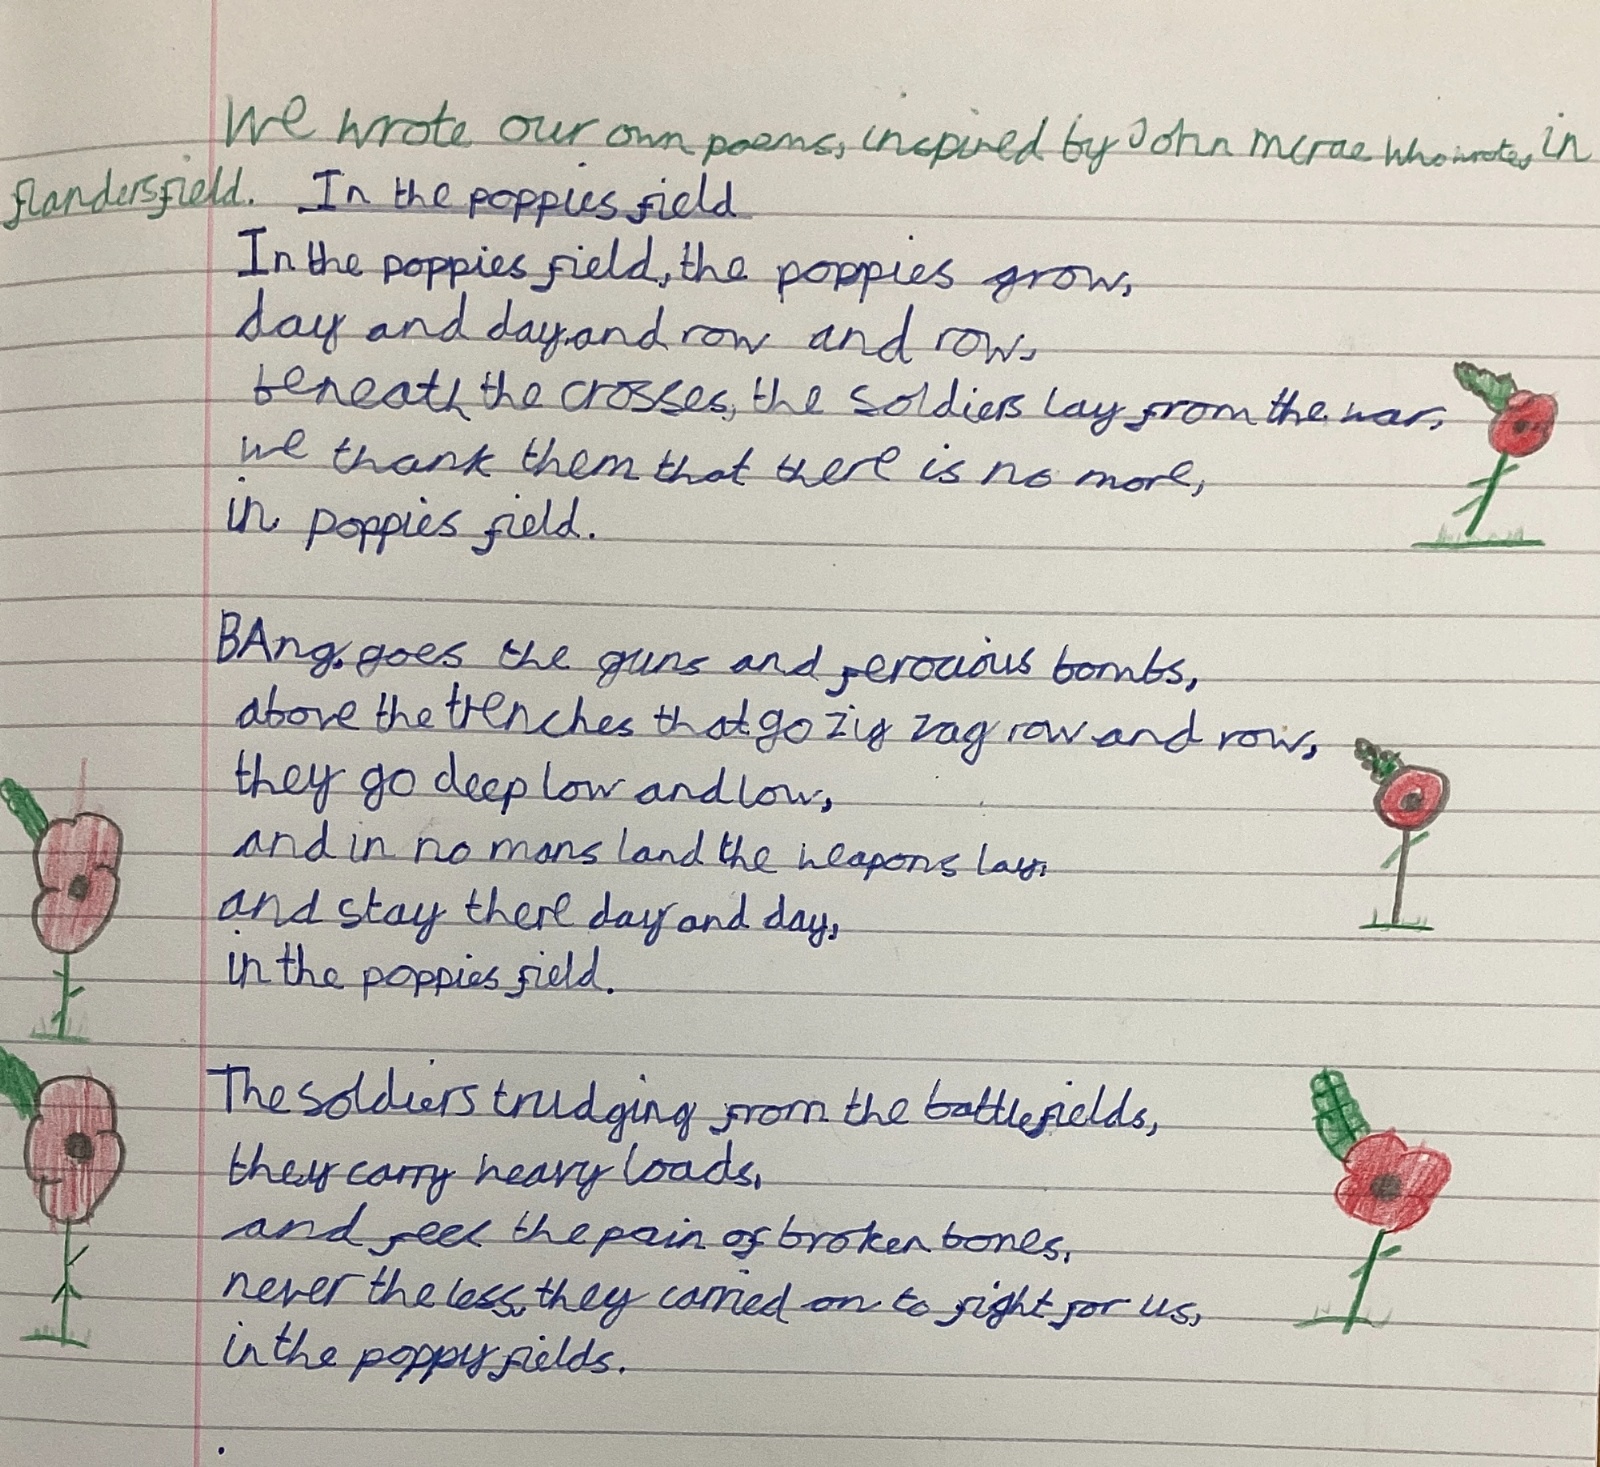 We wrote our own poems, inspired by John mcrae who wrote, in
flandersfield.
In the poppies field
In the poppies field, the poppies grow,
day and day, and row and row,
beneath the crosses, the soldiers lay from the war,
we thank them that there is no more,
in poppies field.
BAng, goes the guns and ferocious bombs,
above the trenches that go zig zag row and row,
they go deep low and low,
and in no mans land the weapons lay,
and stay there day and day,
in the poppies field.
The soldiers trudging from the battlefields,
they carry heavy loads,
and feel the pain of broken bones,
never the less, they carried on to fight for us,
in the poppy fields.